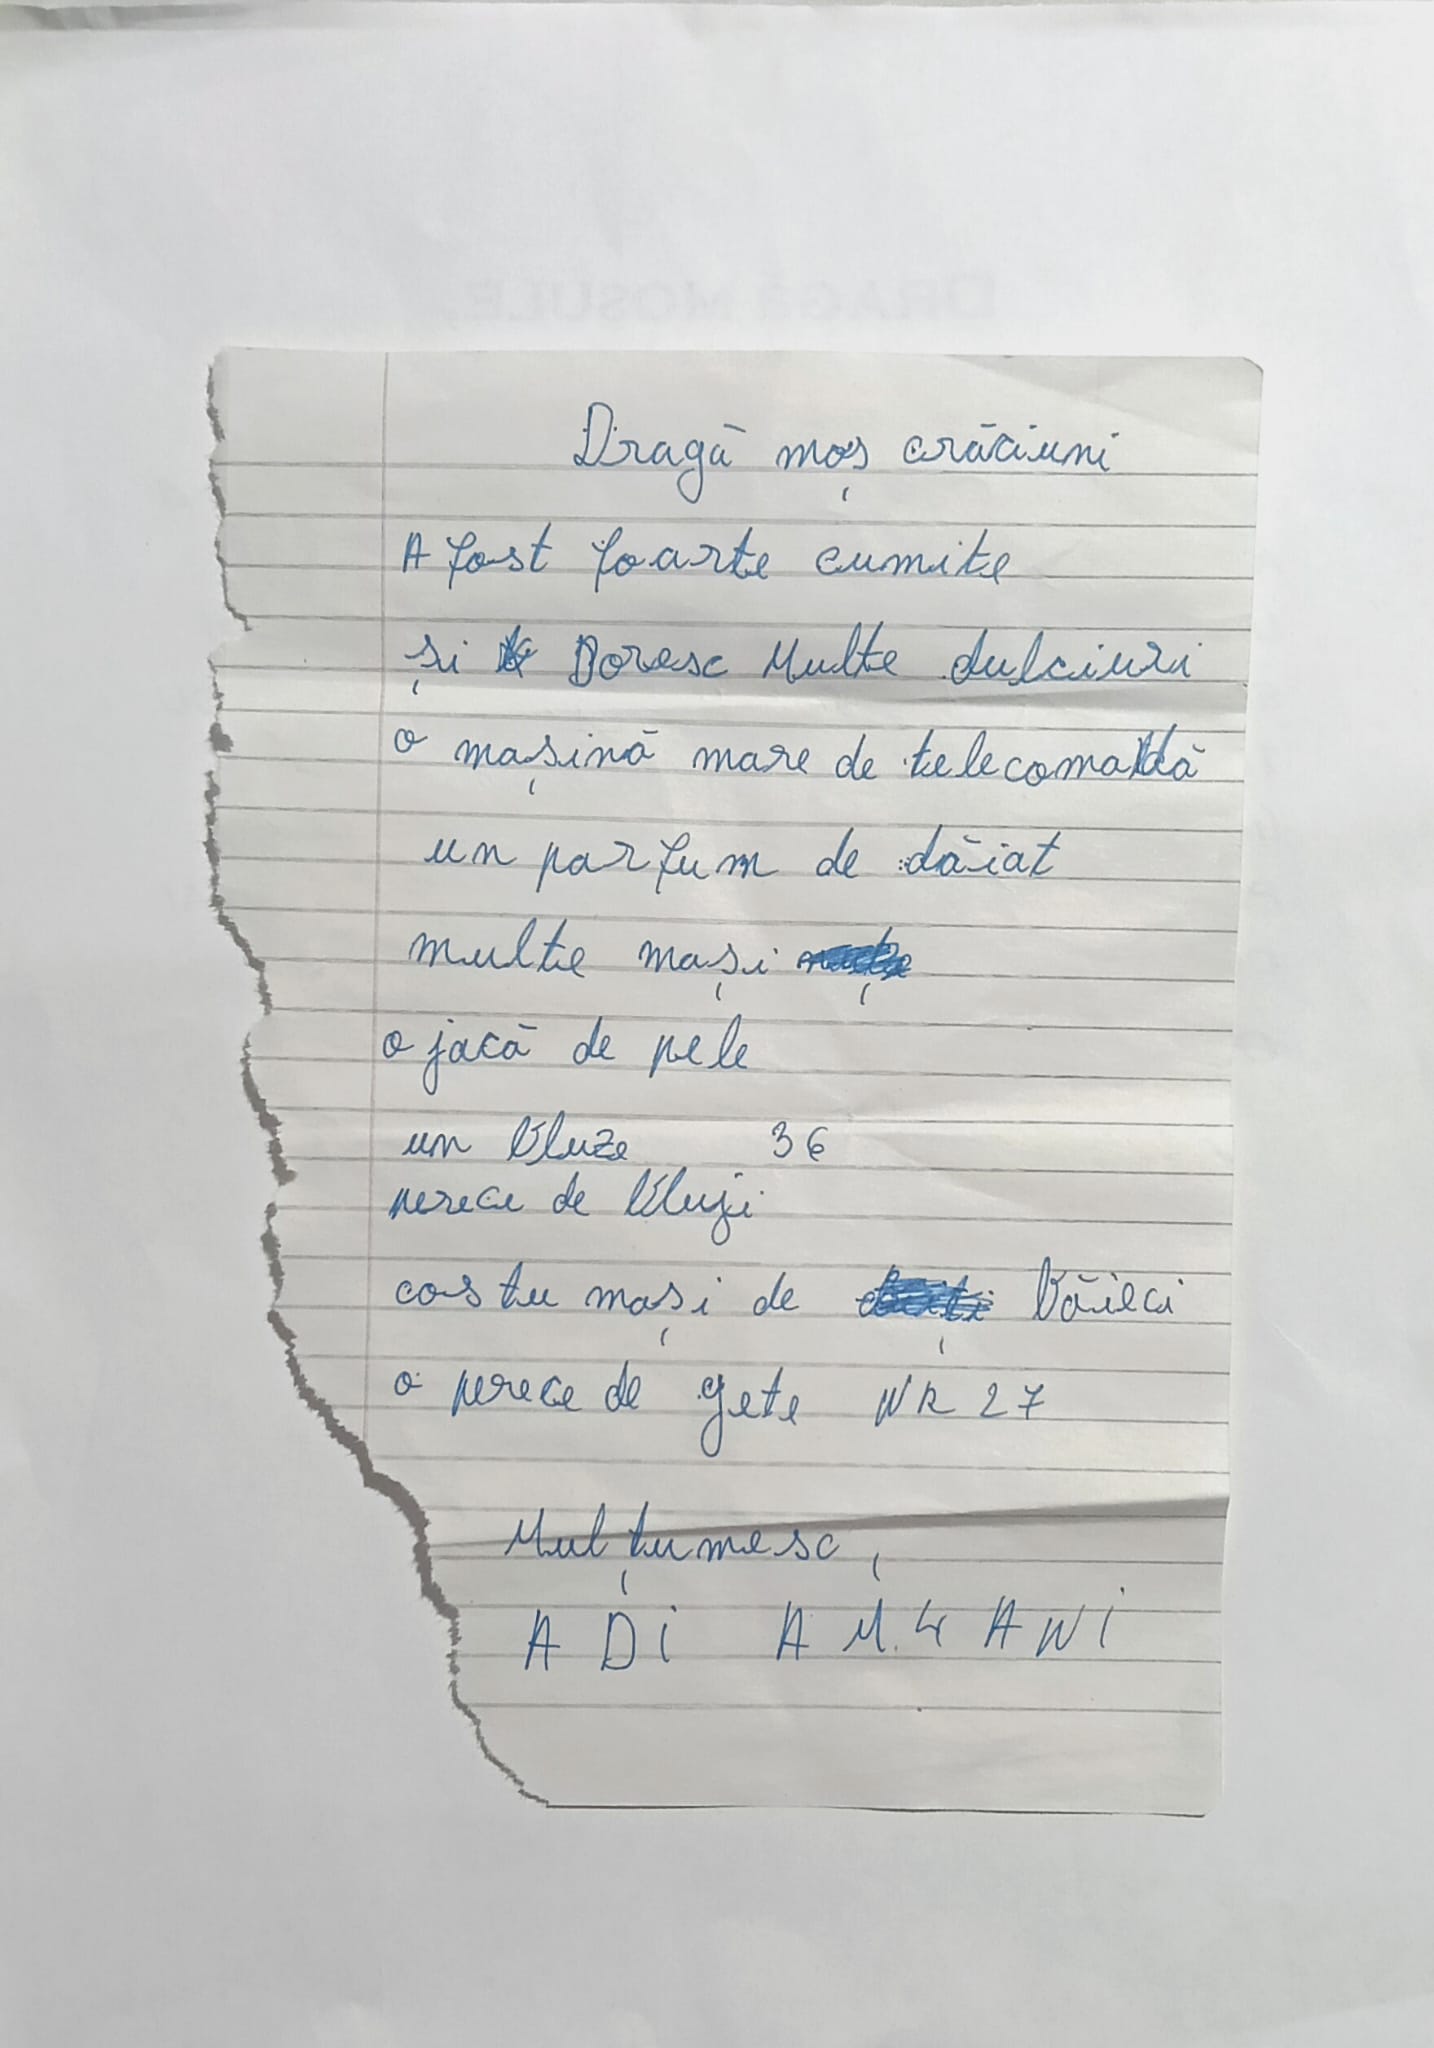 DRAGĂ MOȘULE,
Dragă moș crăciuni
A fost foarte cumite
și Doresc Multe dulciuri
o mașină mare de telecomadă
un parfum de dăiat
multe mași
o jacă de pele
un bluze 36
perece de bluji
costu mași de băieci
o perece de gete NR 27
Mulțumesc,
ADi